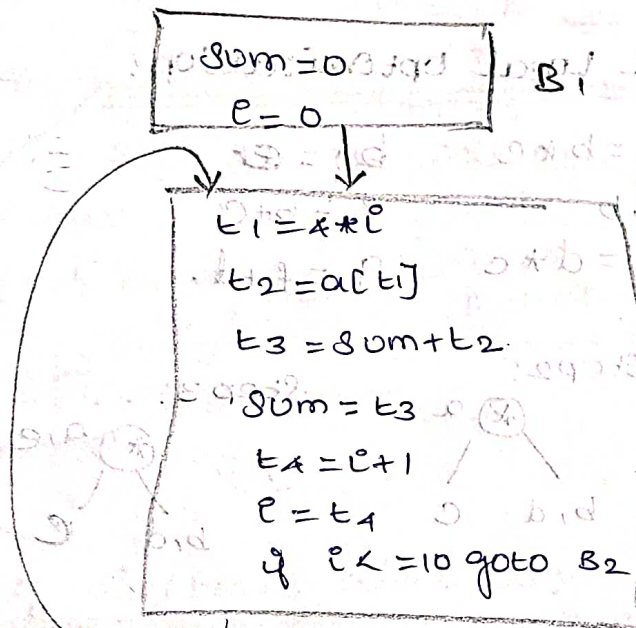 sum = 0
i = 0
B1
t1 = 4*i
t2 = a[t1]
t3 = sum + t2
sum = t3
t4 = i+1
i = t4
if i <= 10 goto B2